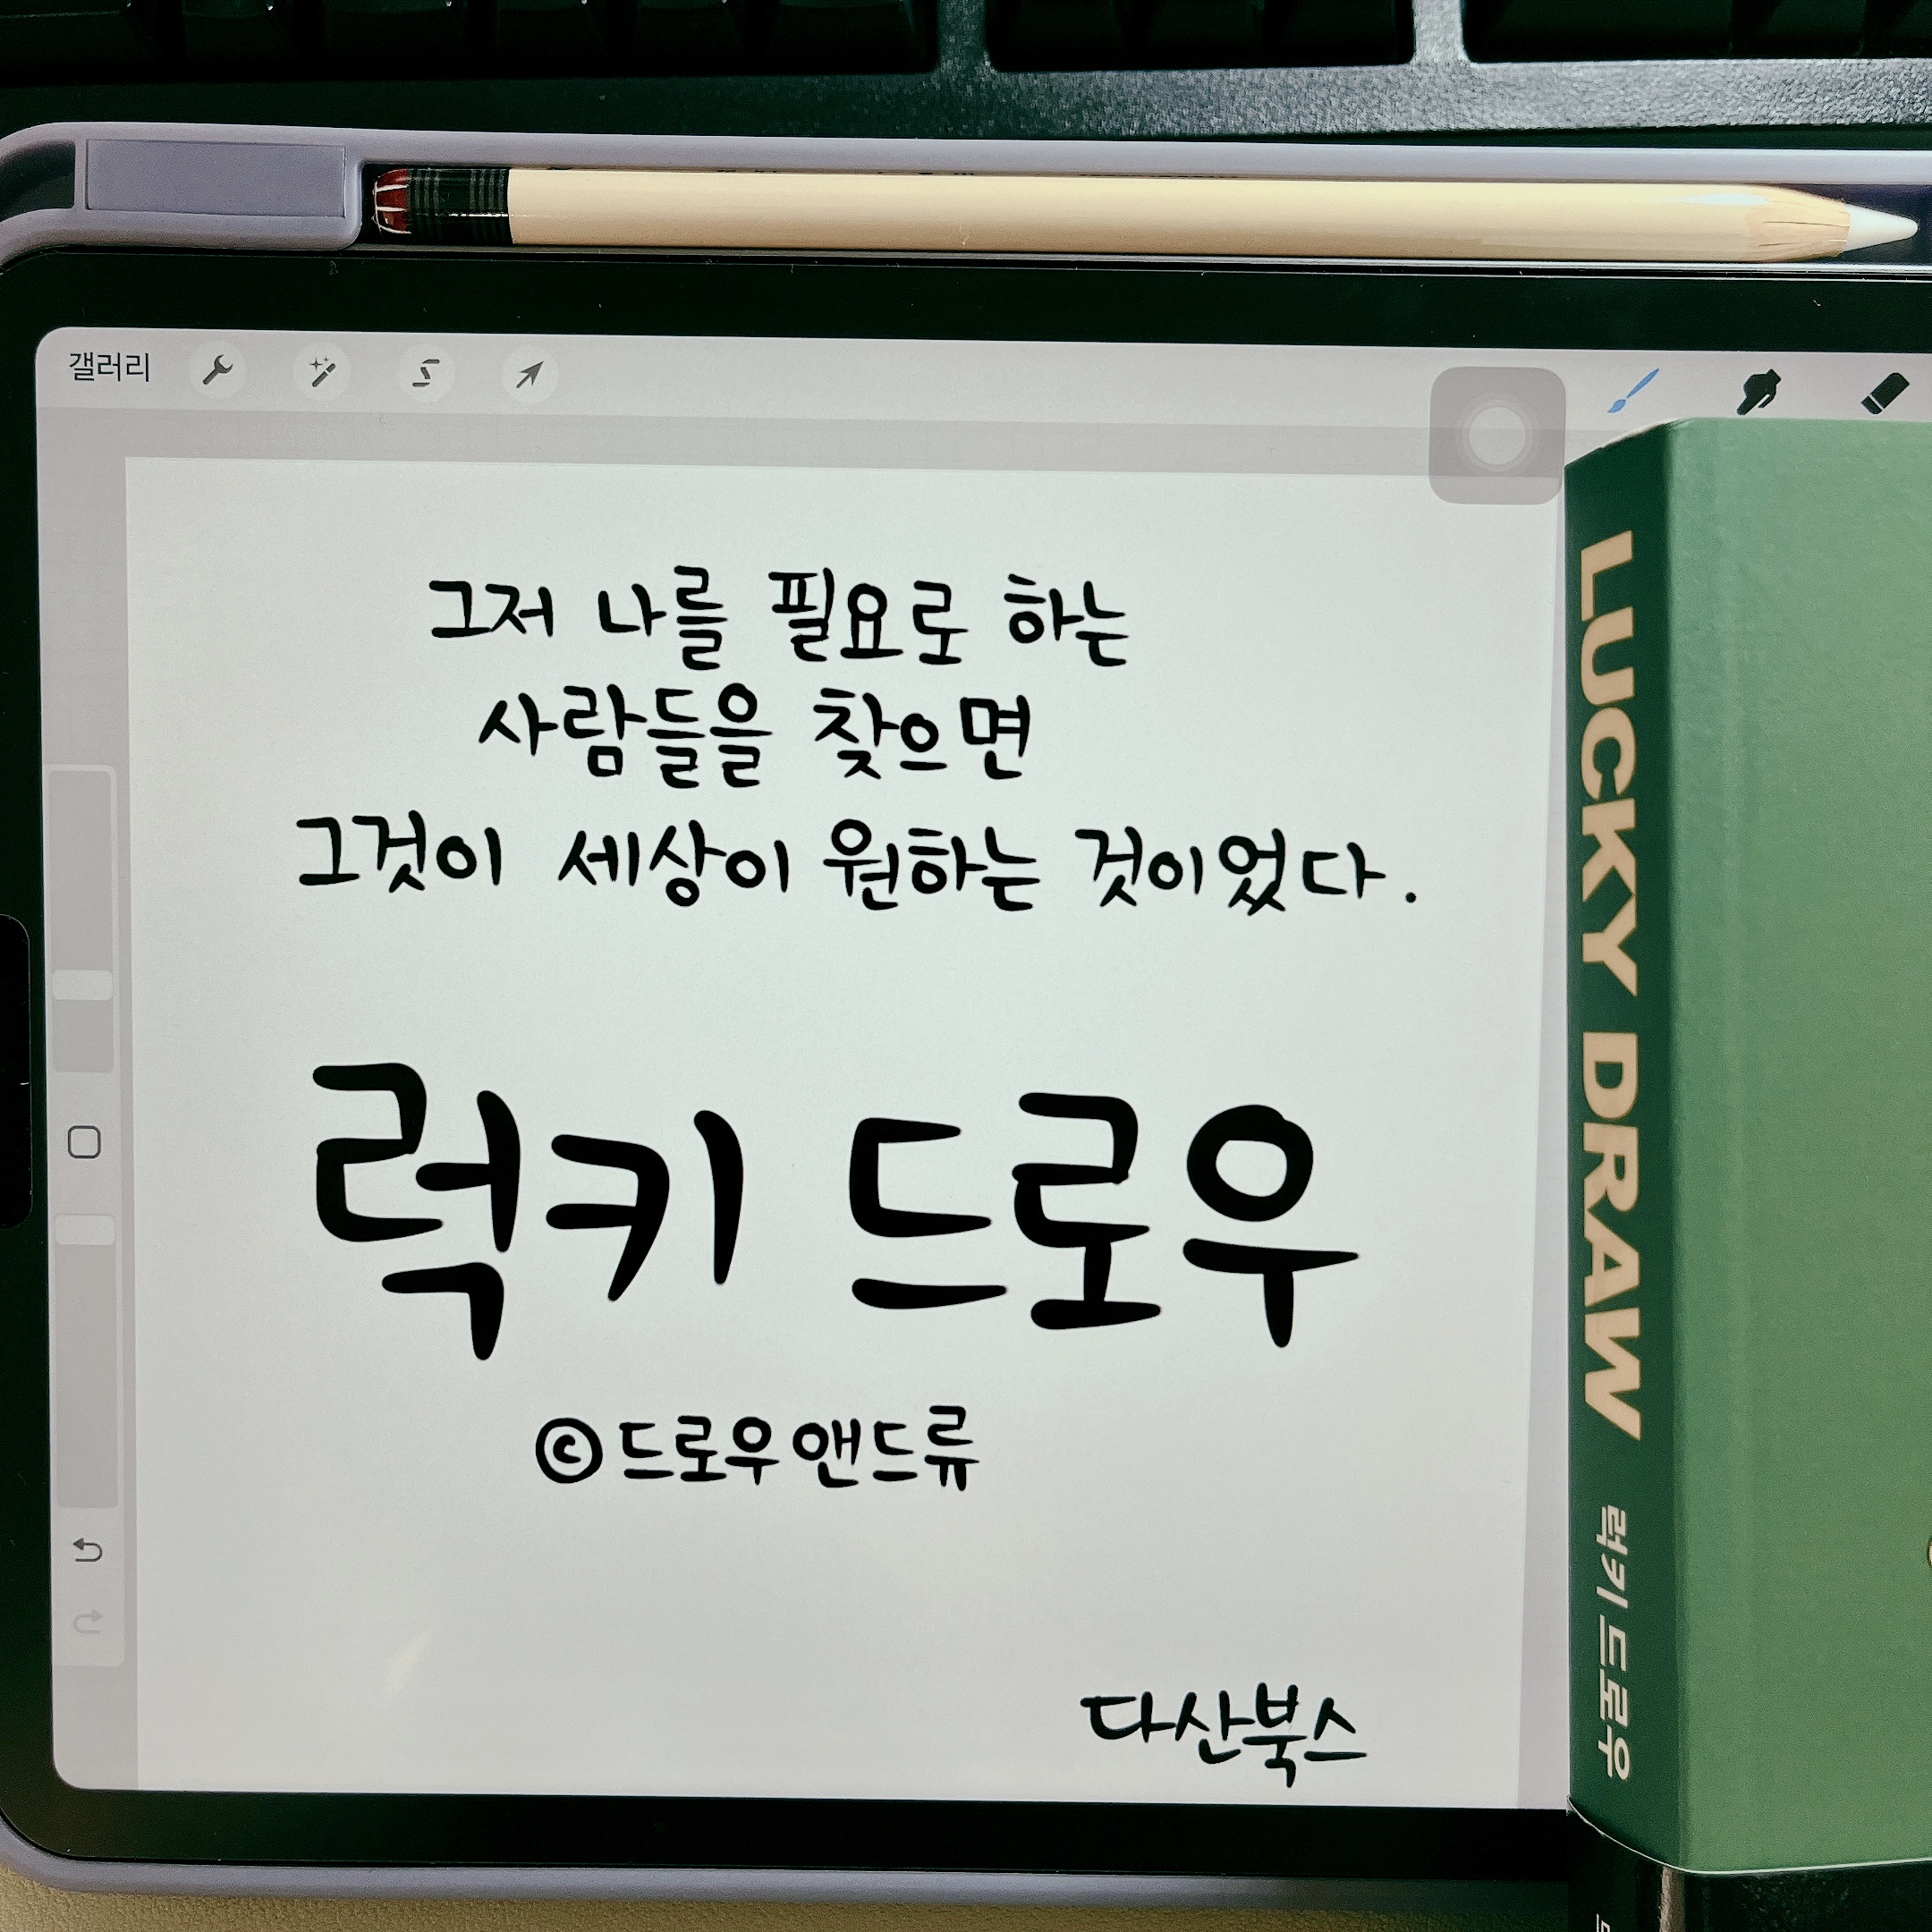 갤러리
그저 나를 필요로 하는
사람들을 찾으면
그것이 세상이 원하는 것이었다.
럭키 드로우
©드로우앤드류
다산북스
LUCKY DRAW 럭키 드로우